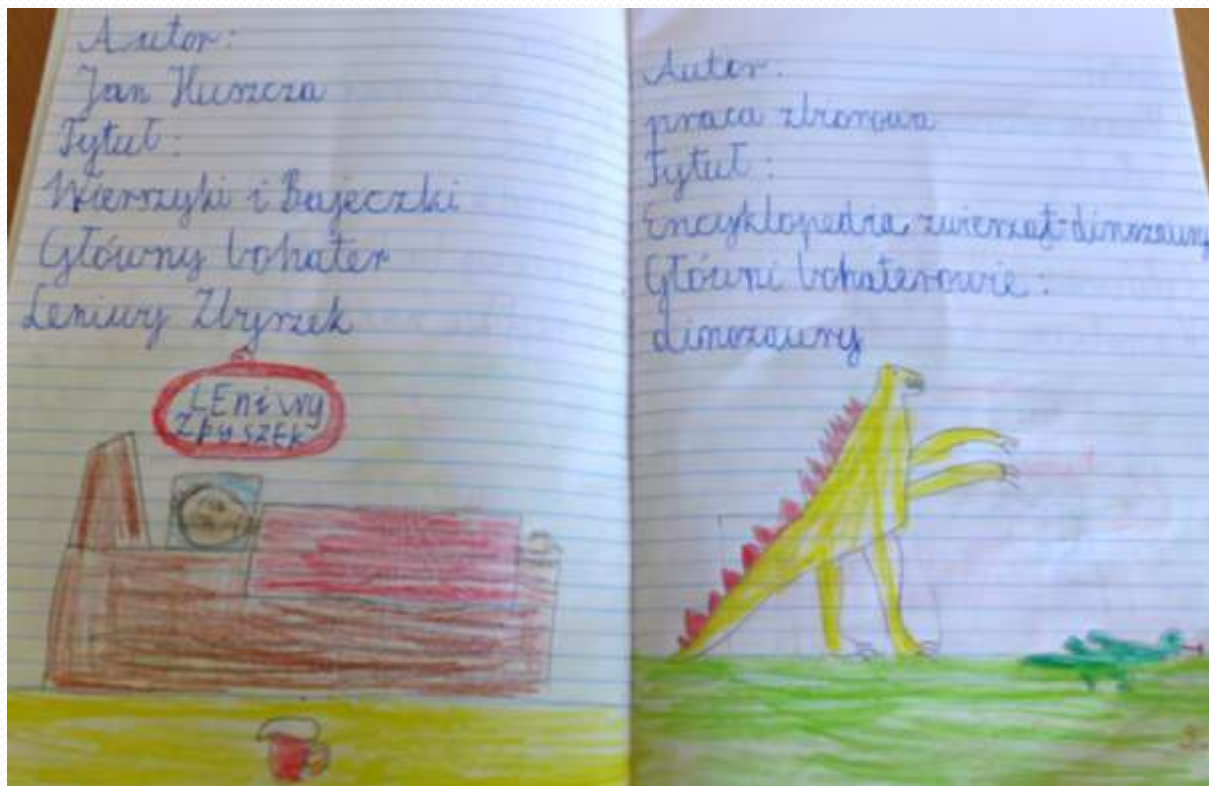 Autor:
Jan Huszcza
Tytuł:
Wierszyki i Bajeczki
Główny bohater
Leniwy Zbyszek
LEniwy
ZbySZEK
Autor:
praca zbiorowa
Tytuł:
Encyklopedia zwierząt-dinozaury
Główni bohaterowie:
dinozaury